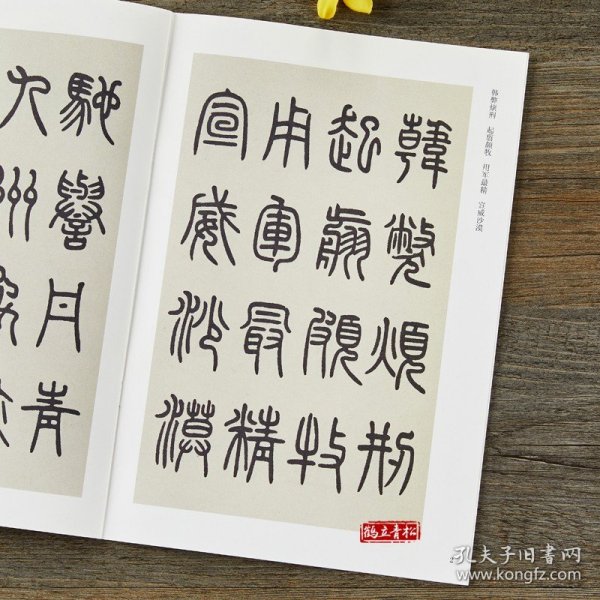 韩弊烦刑　起翦颇牧　用军最精　宣威沙漠
韓弊煩刑
起翦頗牧
用軍最精
宣威沙漠
馳譽丹青
九州
鹤立青松
孔夫子旧书网
www.kongfz.com